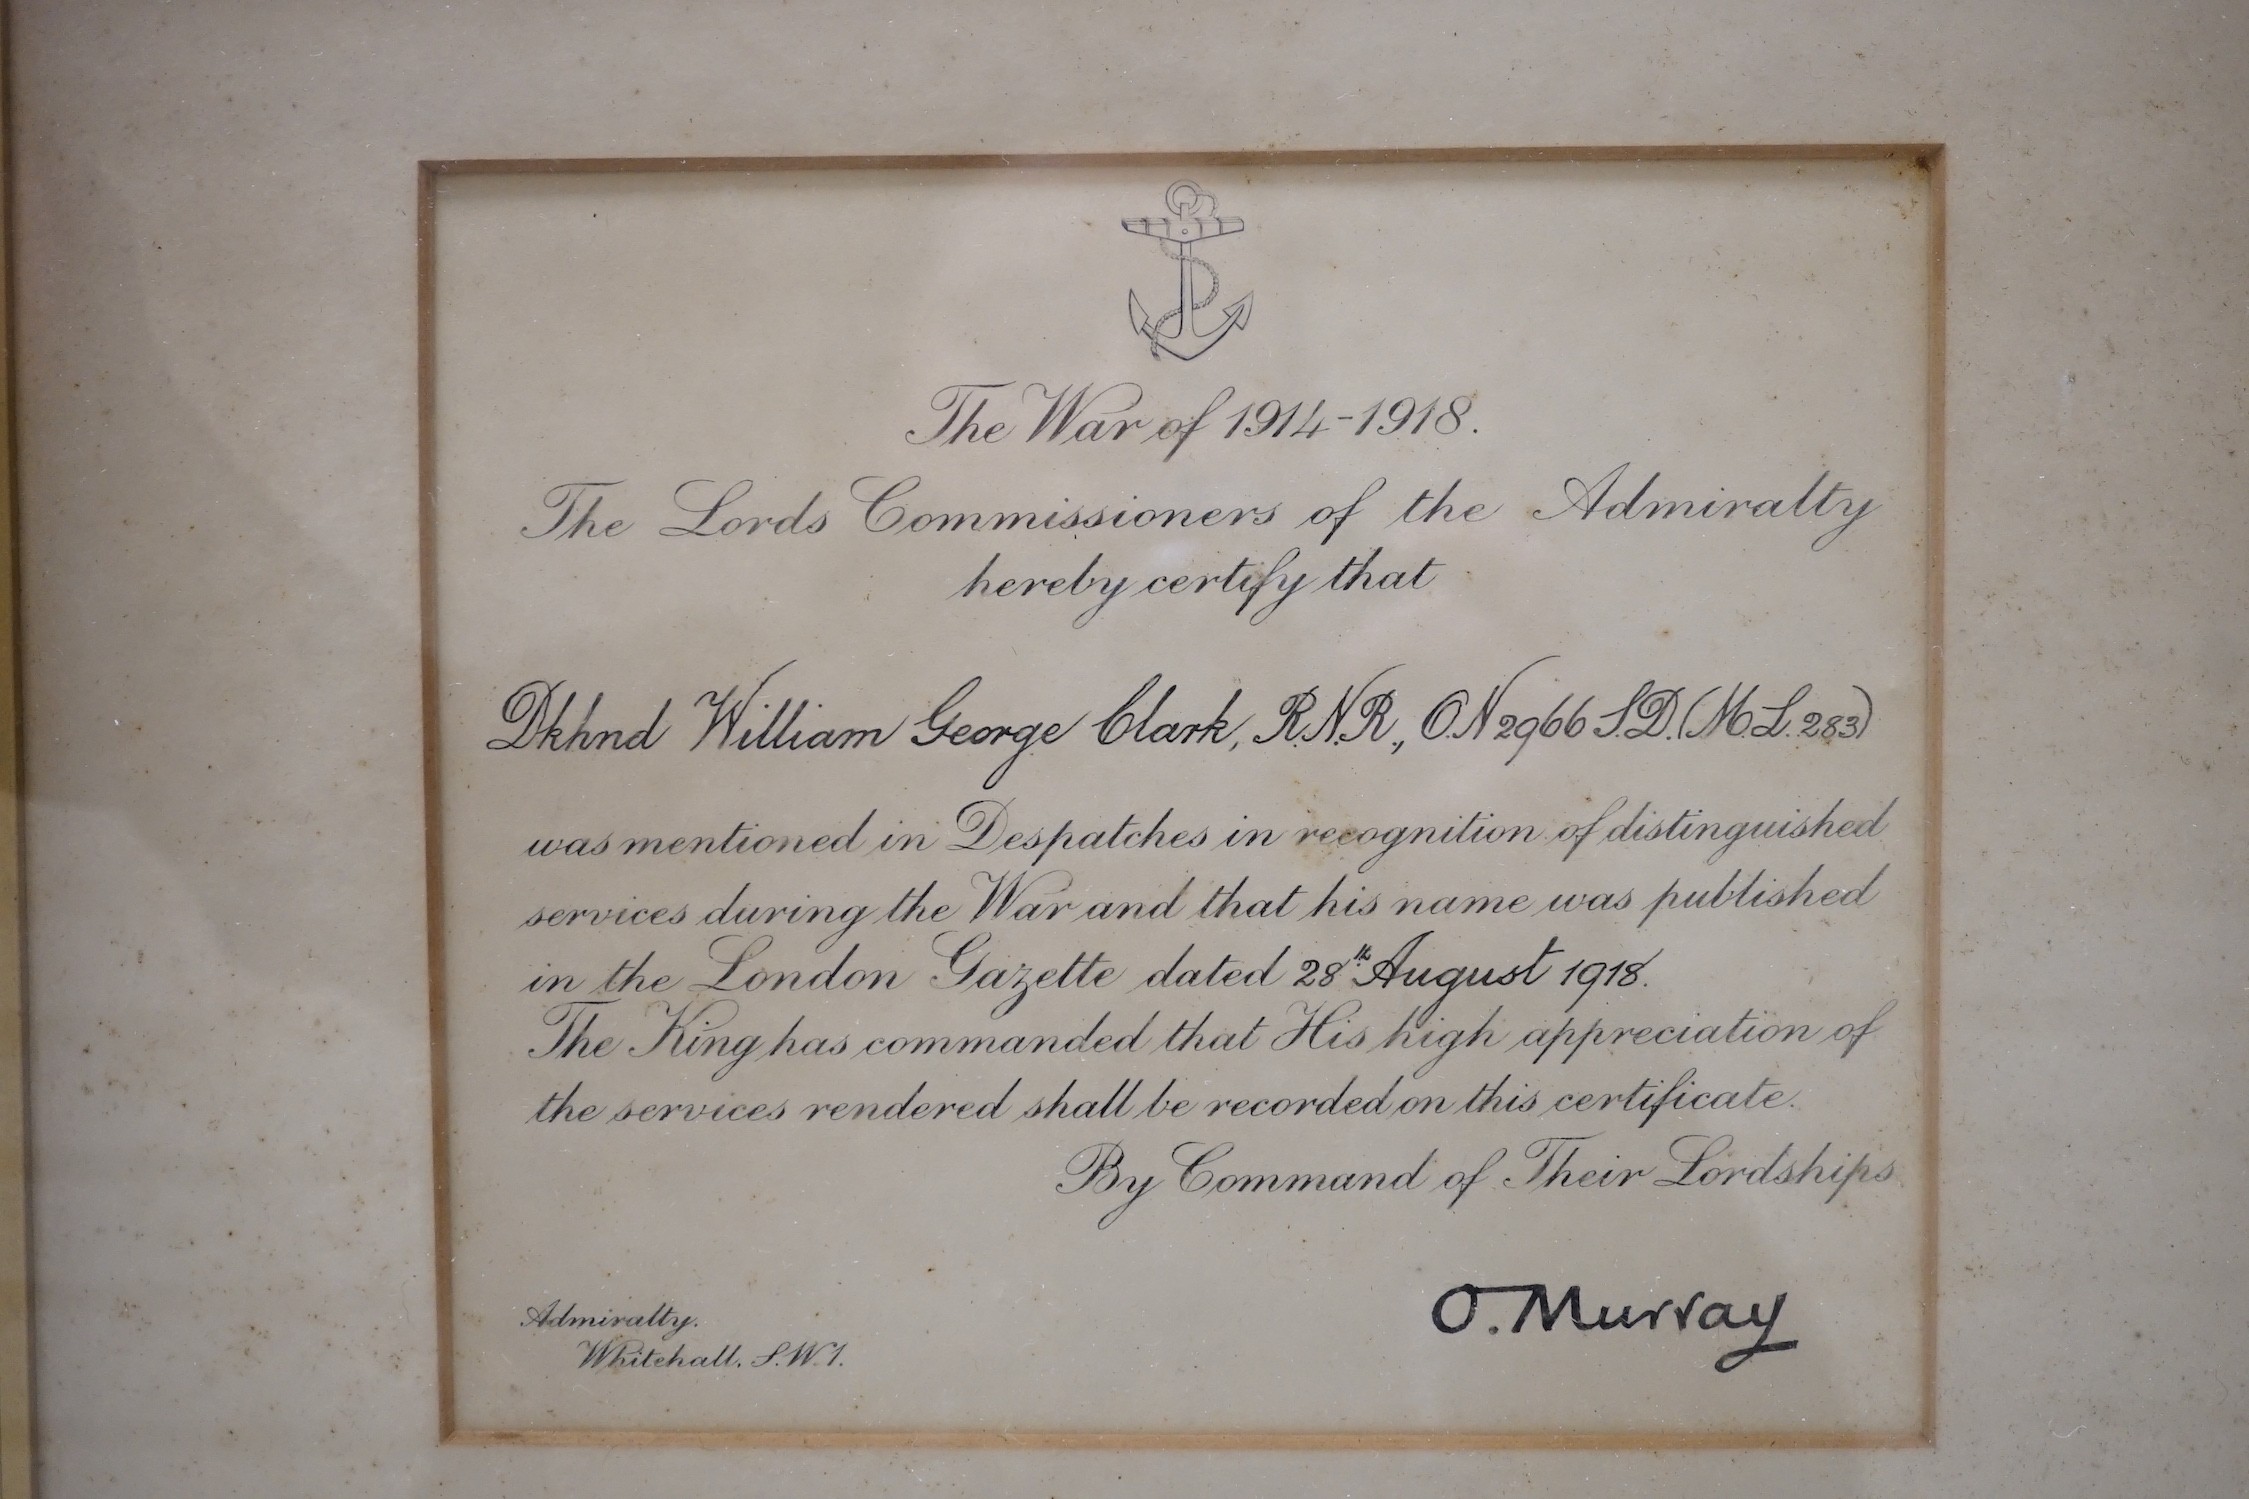 The War of 1914-1918.
The Lords Commissioners of the Admiralty
hereby certify that
Dkhnd William George Clark, R.N.R., O.N 2966 S.D. (M.L. 283)
was mentioned in Despatches in recognition of distinguished
services during the War and that his name was published
in the London Gazette dated 28th August 1918.
The King has commanded that His high appreciation of
the services rendered shall be recorded on this certificate.
By Command of Their Lordships
O. Murray
Admiralty.
Whitehall. S.W.1.